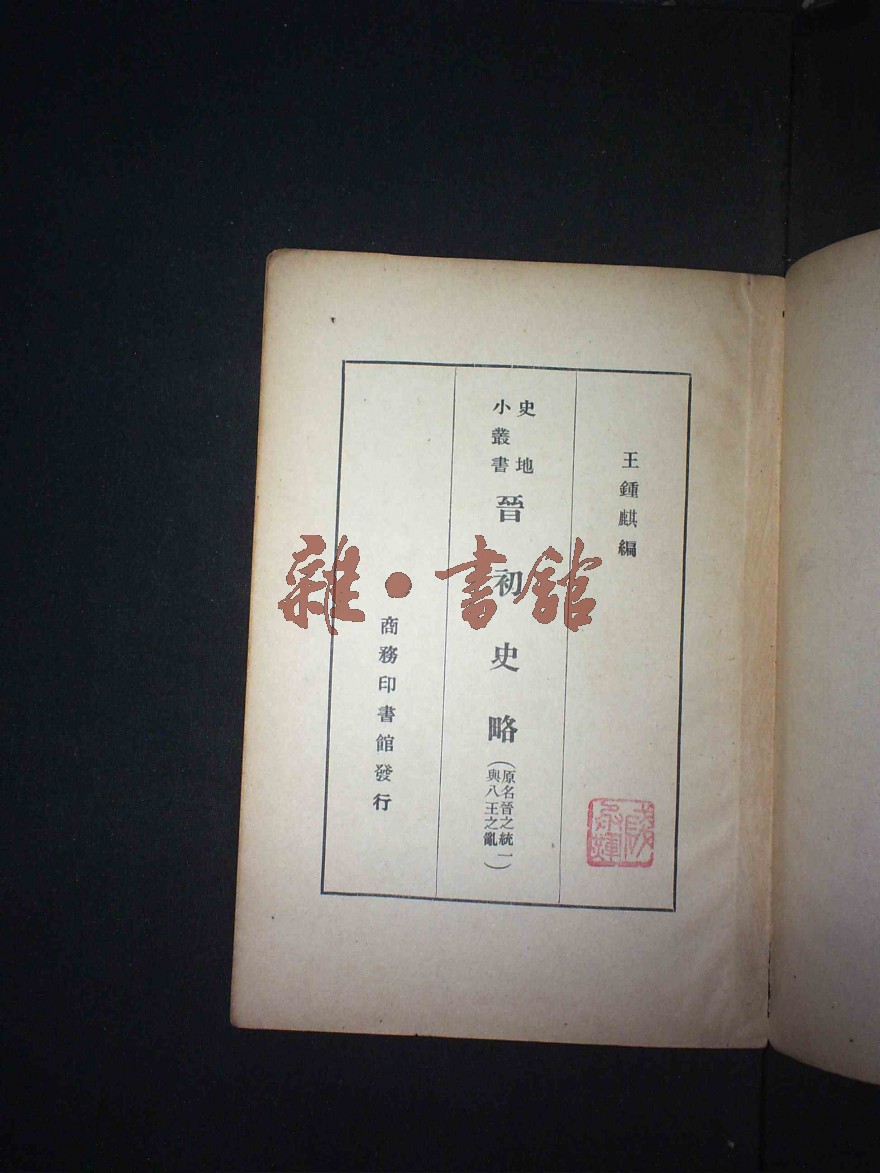 王鍾麒編
史地
小叢書
晉初史略
(原名晉之統一
與八王之亂)
商務印書館發行
雜·書館